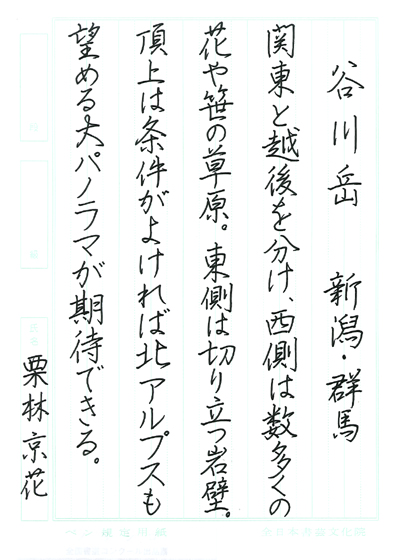 谷川岳　新潟・群馬
関東と越後を分け、西側は数多くの
花や笹の草原。東側は切り立つ岩壁。
頂上は条件がよければ北アルプスも
望める大パノラマが期待できる。
栗林京花
氏名